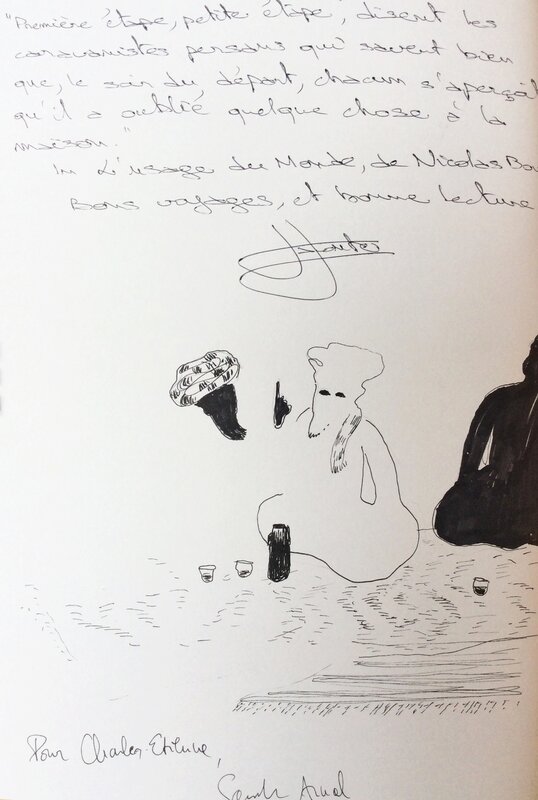 "Première étape, petite étape, disent les
caravanistes persans qui savent bien
que, le soir du départ, chacun s'aperçoit
qu'il a oublié quelque chose à la
maison."
In L'usage du Monde, de Nicolas Bou
Bons voyages, et bonne lecture
Pour Charles-Etienne,